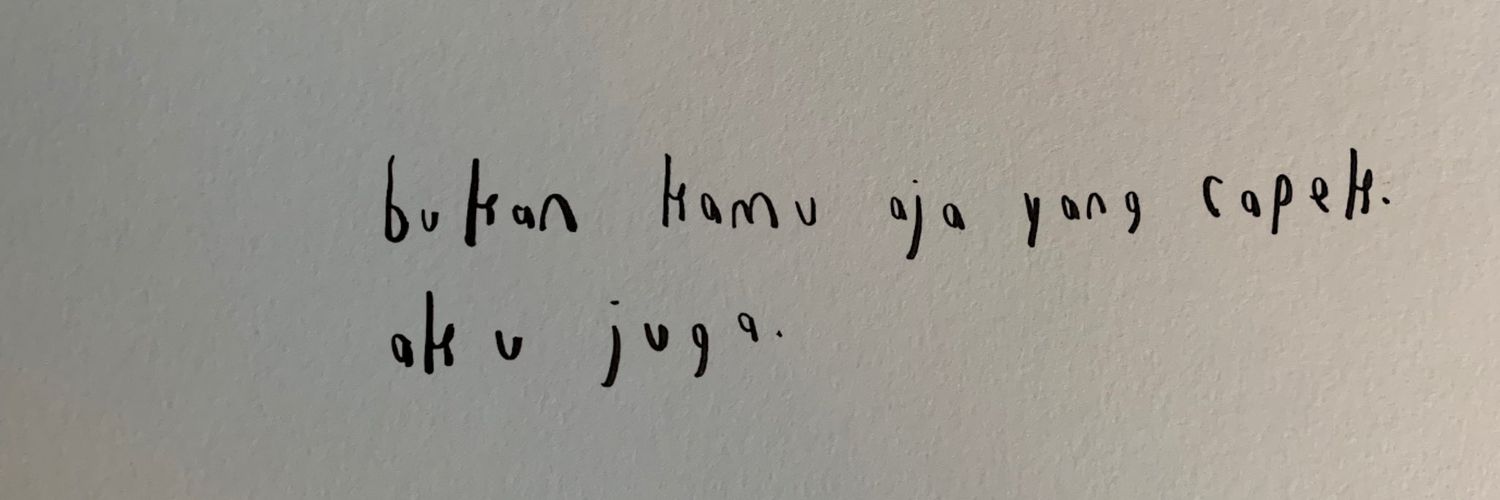 bukan kamu aja yang capek.
aku juga.